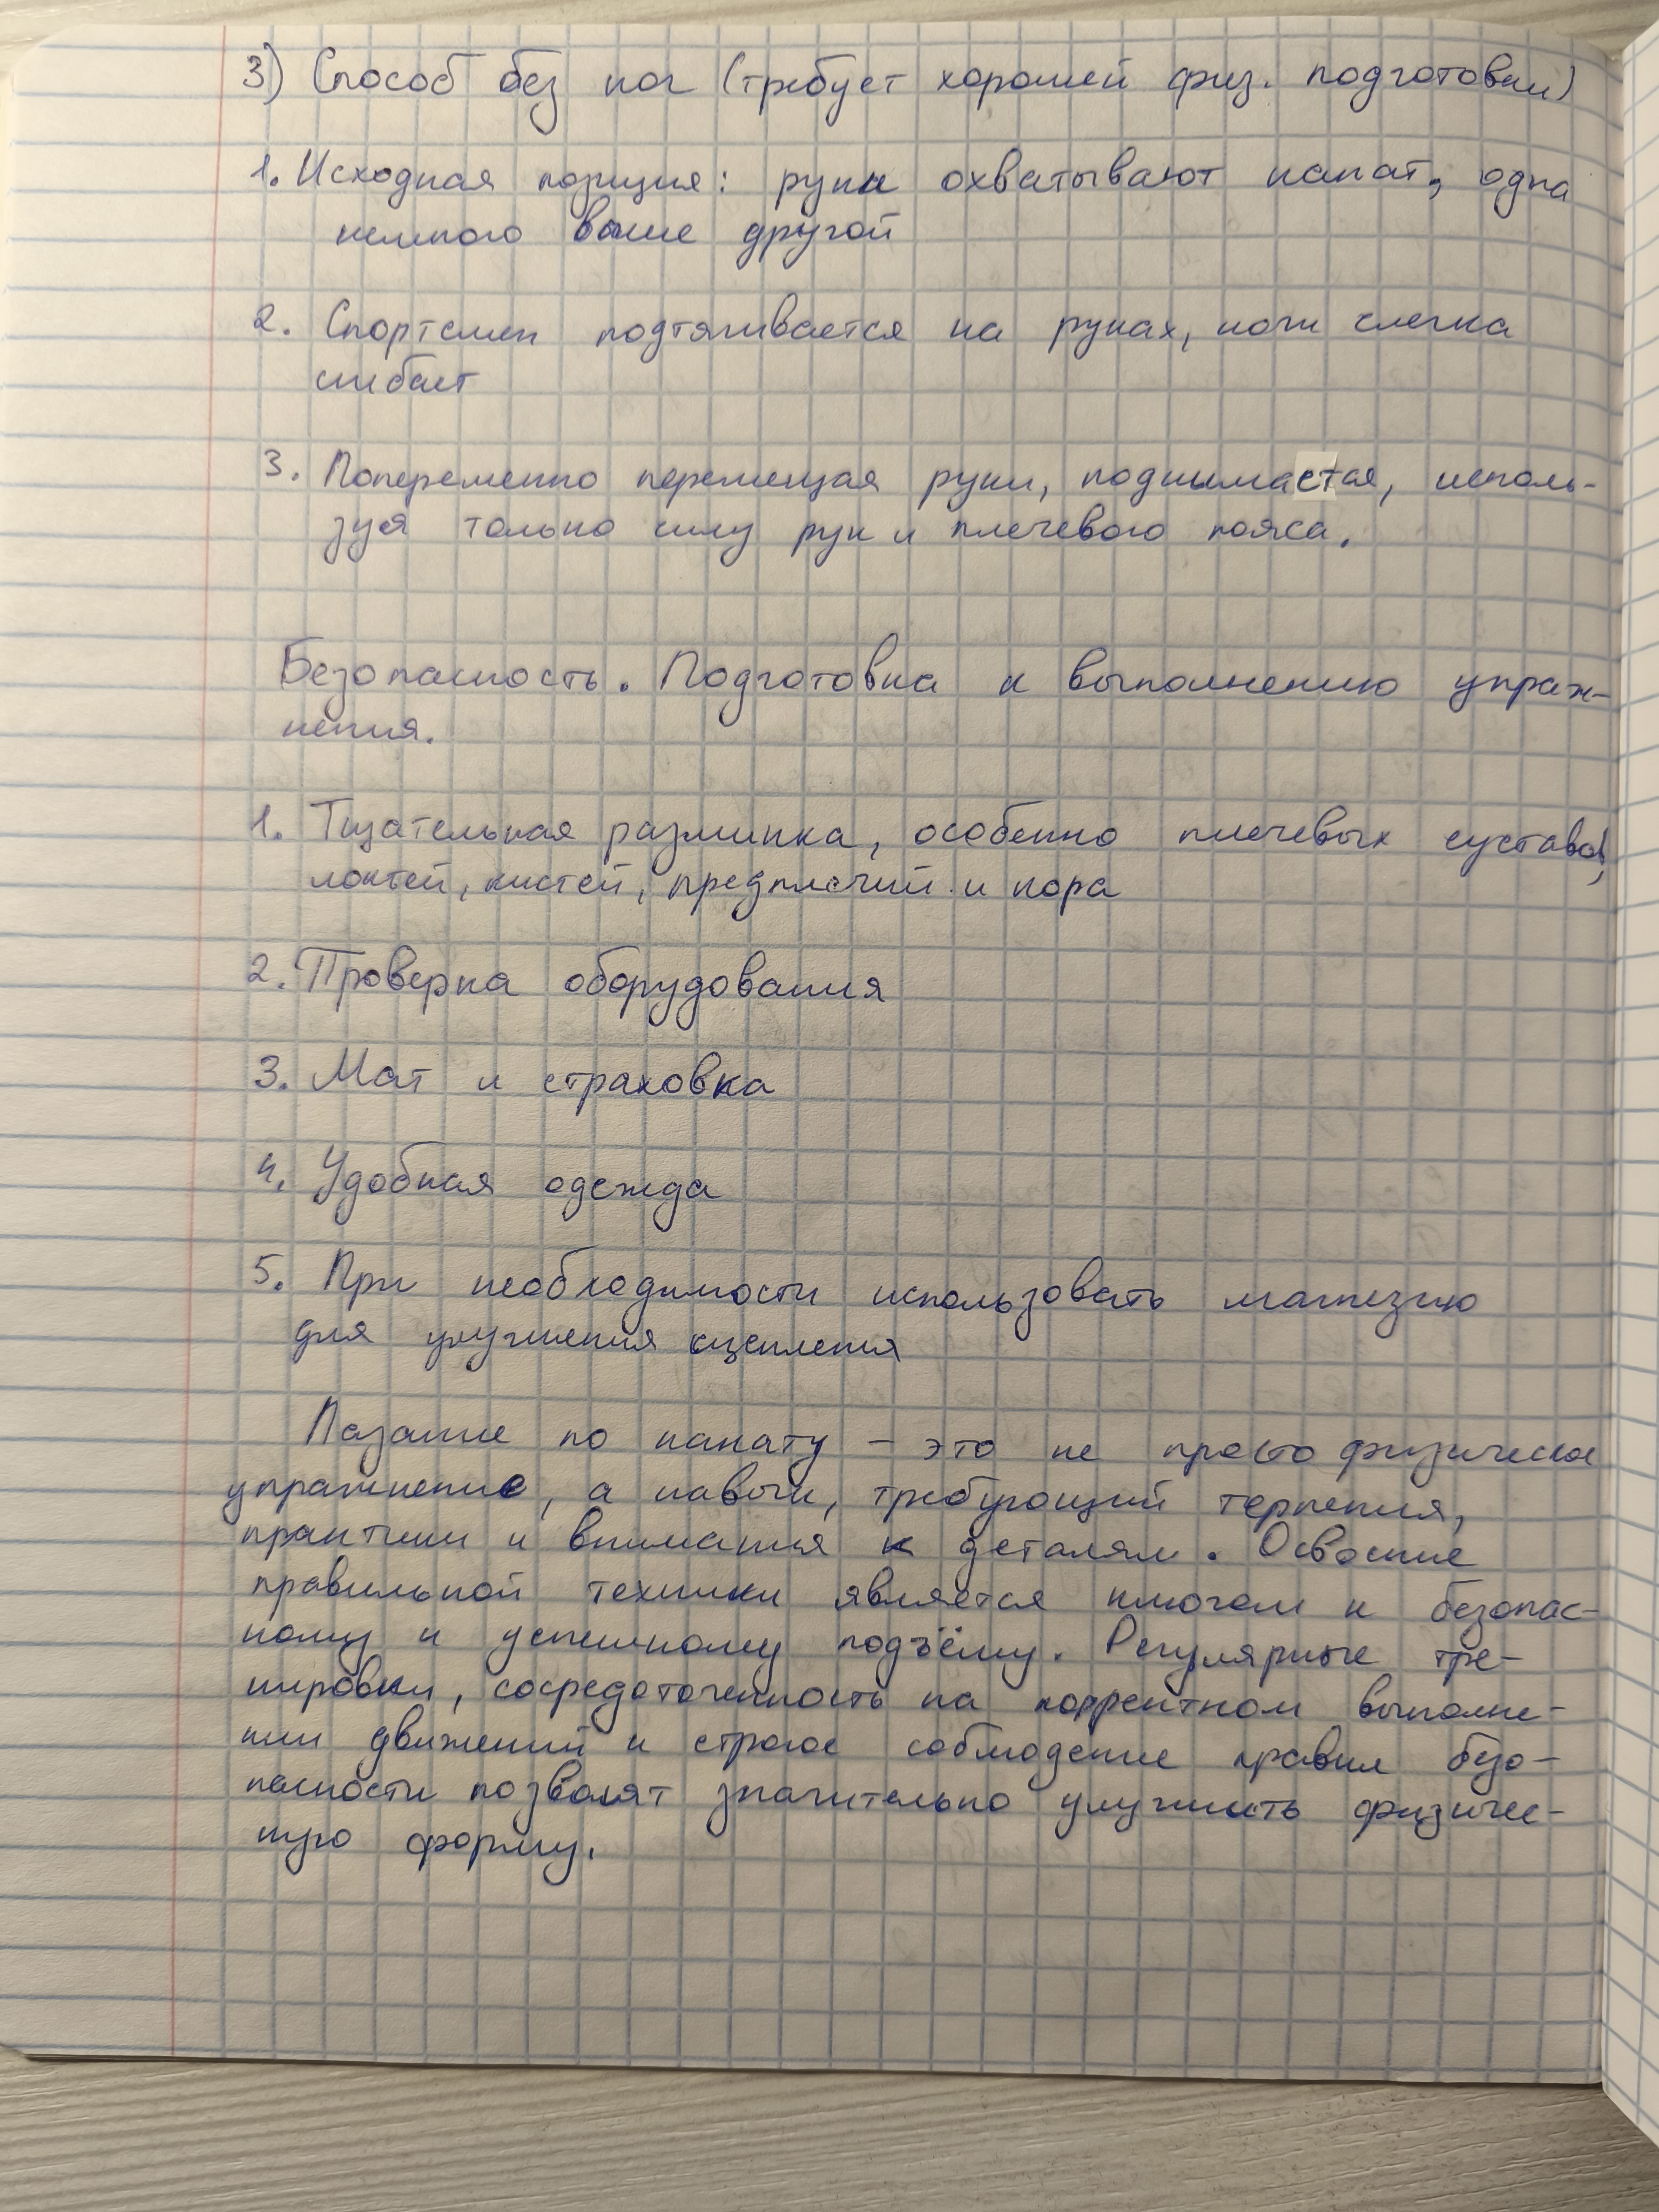 3) Способ без ног (требует хорошей физ. подготовки)
1. Исходная позиция: руки охватывают канат, одна
немного выше другой
2. Спортсмен подтягивается на руках, ноги слегка
сгибает
3. Попеременно перемещая руки, поднимается, исполь-
зуя только силу рук и плечевого пояса.
Безопасность. Подготовка к выполнению упраж-
нения.
1. Тщательная разминка, особенно плечевых суставов,
локтей, кистей, предплечий и кора
2. Проверка оборудования
3. Мат и страховка
4. Удобная одежда
5. При необходимости использовать магнезию
для улучшения сцепления
Лазание по канату – это не просто физическое
упражнение, а навык, требующий терпения,
практики и внимания к деталям. Освоение
правильной техники является ключом к безопас-
ному и успешному подъёму. Регулярные тре-
нировки, сосредоточенность на корректном выполне-
нии движений и строгое соблюдение правил безо-
пасности позволят значительно улучшить физичес-
кую форму.